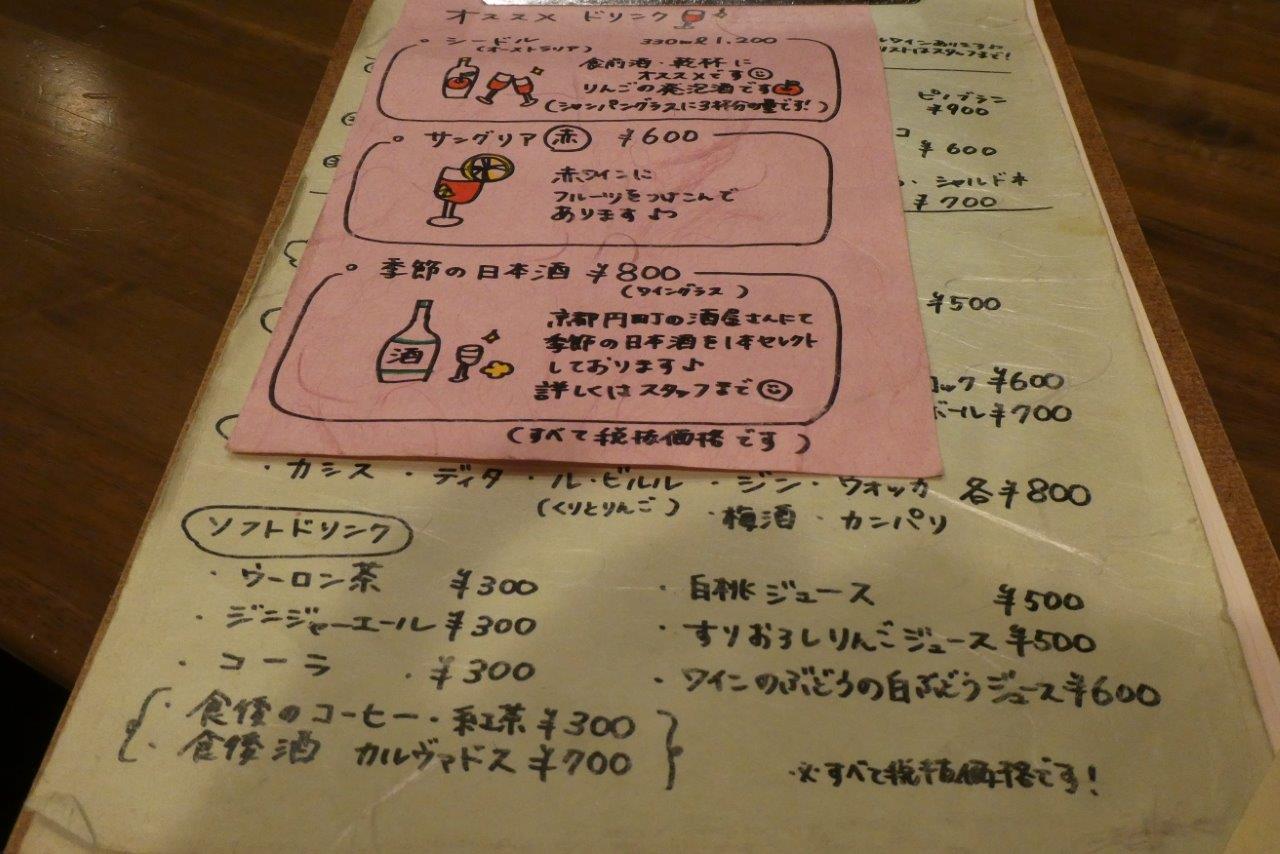 オススメ ドリンク
シードル 330ml 1,200
(オーストラリア)
食前酒・乾杯に
オススメです
りんごの発泡酒です
(シャンパングラスに3杯分の量です!)
サングリア 赤 ¥600
赤ワインに
フルーツをつけこんで
あります♪
季節の日本酒 ¥800
(ワイングラス)
酒
京都円町の酒屋さんにて
季節の日本酒を1本セレクト
しております♪
詳しくはスタッフまで
(すべて税抜価格です)
ルワインあります
リストはスタッフまで!
ピノブラン
¥900
コ
¥600
シャルドネ
¥700
¥500
ロック ¥600
ボール ¥700
・カシス ・ディタ ・ル・ビルル ・ジン・ウォッカ 各¥800
(くりとりんご) ・梅酒 ・カンパリ
ソフトドリンク
・ウーロン茶 ¥300
・ジンジャーエール ¥300
・コーラ ¥300
・食後のコーヒー・紅茶 ¥300
・食後酒 カルヴァドス ¥700
・白桃ジュース ¥500
・すりおろしりんごジュース ¥500
・ワインのぶどうの白ぶどうジュース ¥600
※すべて税抜価格です!